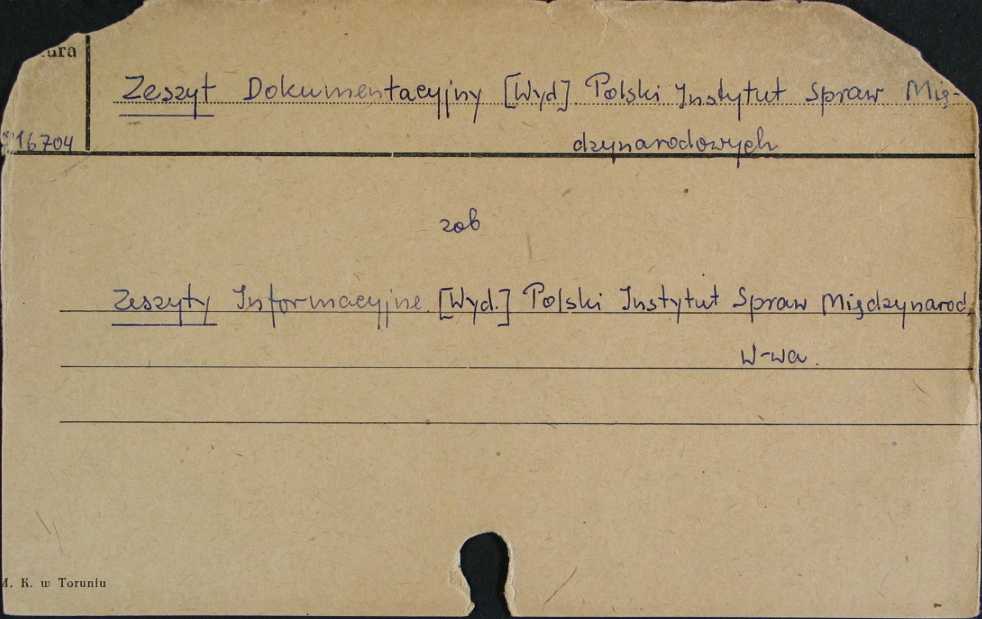 Zeszyt Dokumentacyjny [Wyd] Polski Instytut Spraw Mię-
dzynarodowych
16704
zob
Zeszyty Informacyjne [Wyd.] Polski Instytut Spraw Międzynarod.
W-wa.
M. K. w Toruniu